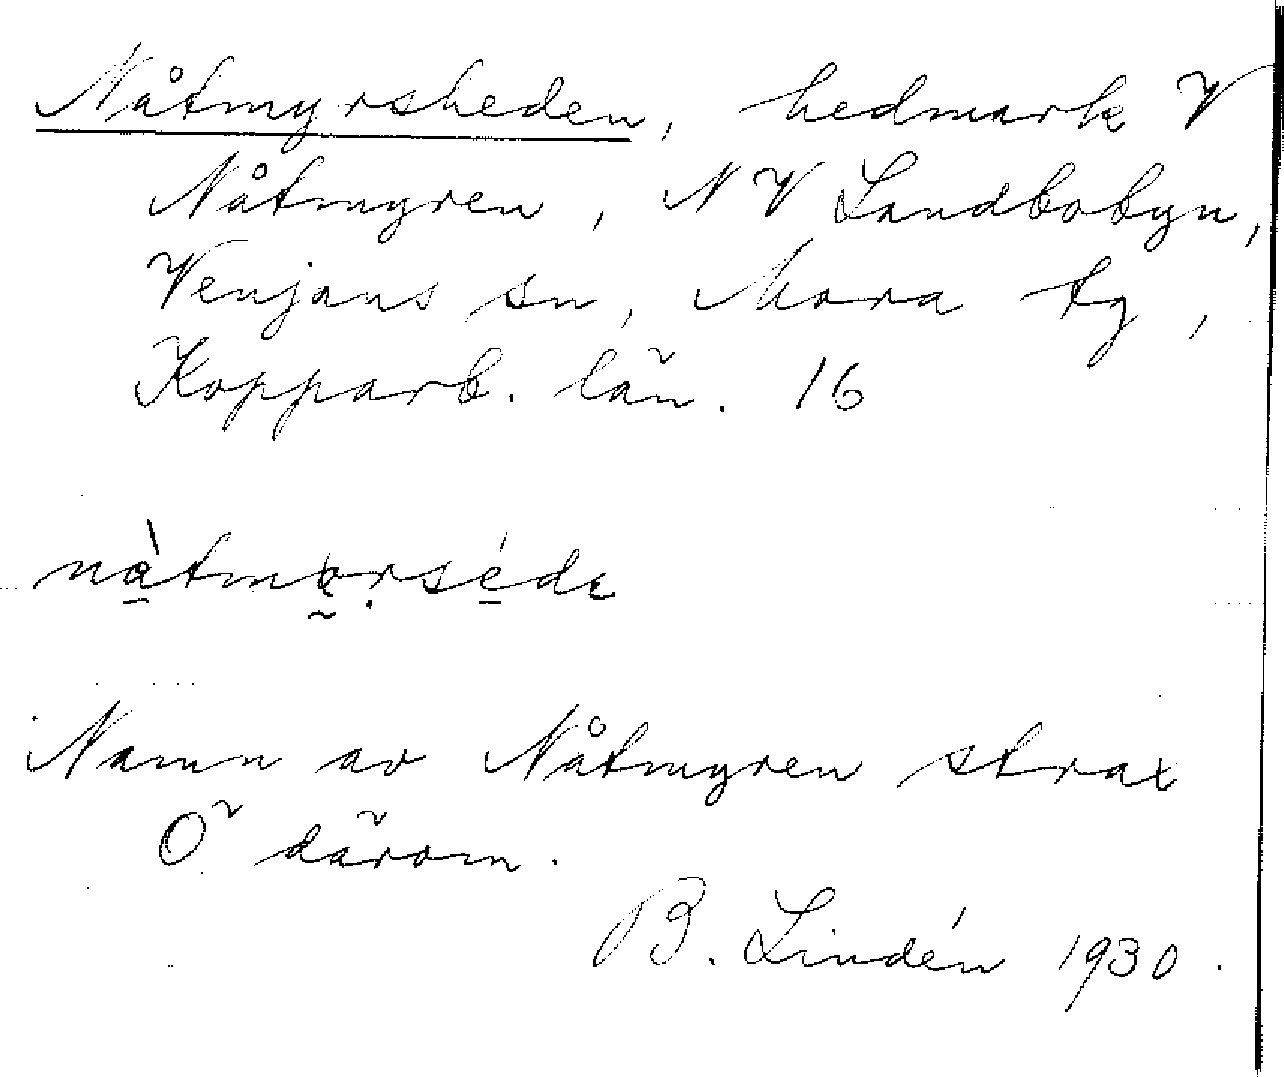 Nåtmyrsheden, hedmark V
Nåtmyren, NV Landbobyn,
Venjans sn, Mora tg,
Kopparb. län. 16
Namn av Nåtmyren strax
Ö därom.
B. Lindén 1930.